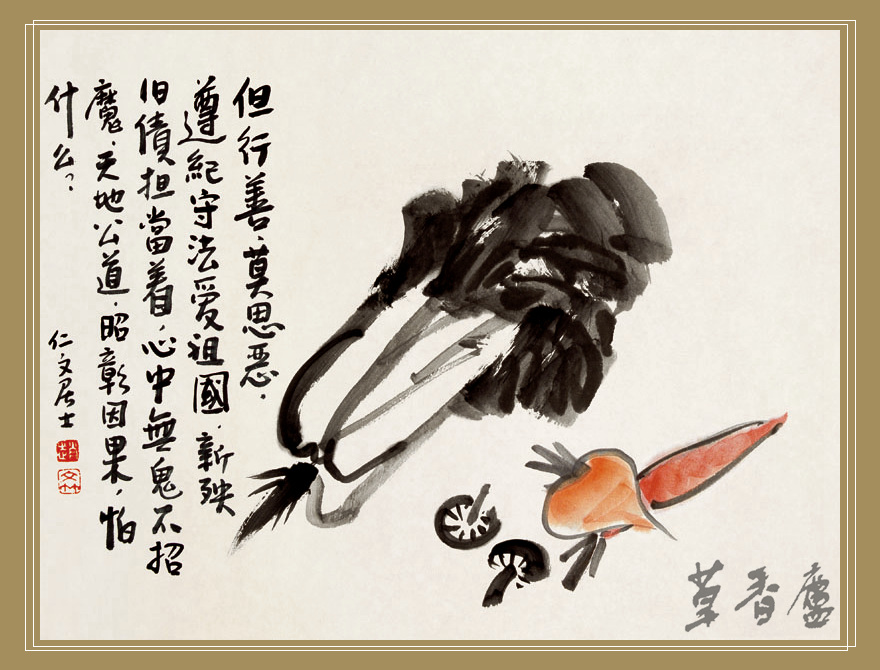 但行善，莫思恶，
遵紀守法爱祖國，新殃
旧債担當着，心中無鬼不招
魔，天地公道，昭彰因果，怕
什么？
仁文居士
草香廬